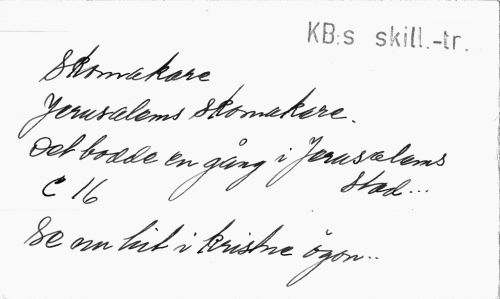 KB:s skill.-tr.
Skomakare
Jerusalems skomakare.
Det bodde en gång i Jerusalems
stad...
C 16
Se nu hit i kristne ögon..